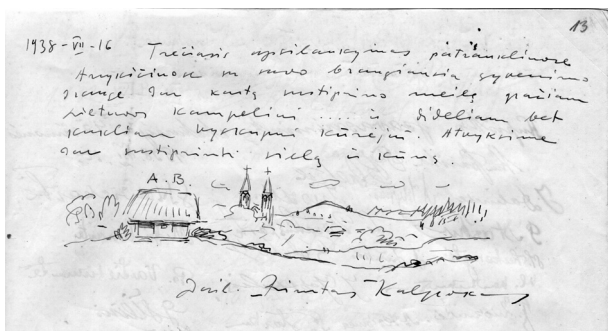 13
1938-VII-16 Trečiasis apsilankymas patrauklinose
Anykščiuose su savo brangiausia gyvenimo
drauge dar kartą sustiprino meilę gražiam
Lietuvos kampeliui .... ir dideliam bet
kukliam vyskupui kūrėjui. Atvyksime
dar sustiprinti sielą ir kūną.
A.B
Dail. Rimtas Kalpokas